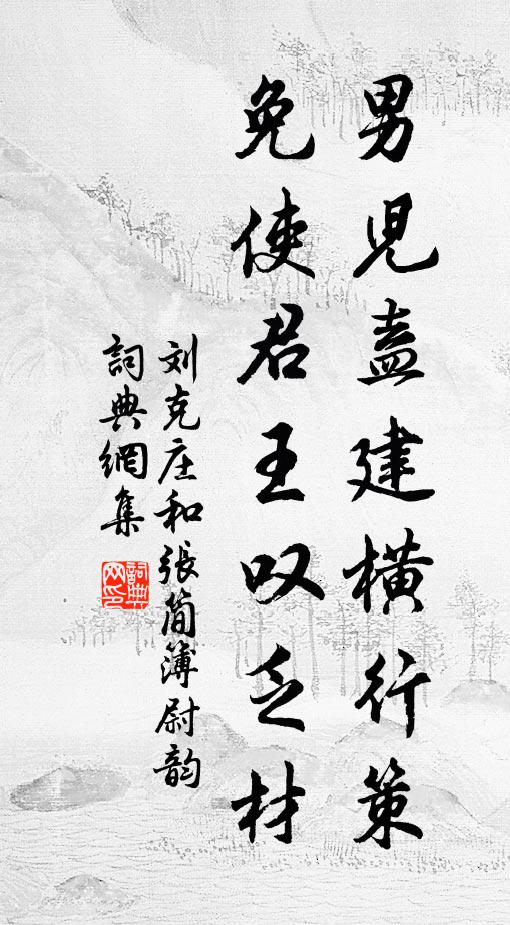 男児盍建橫行策
免使君王叹乏材
刘克庄和張简簿尉韵
詞典網集
詞典网印